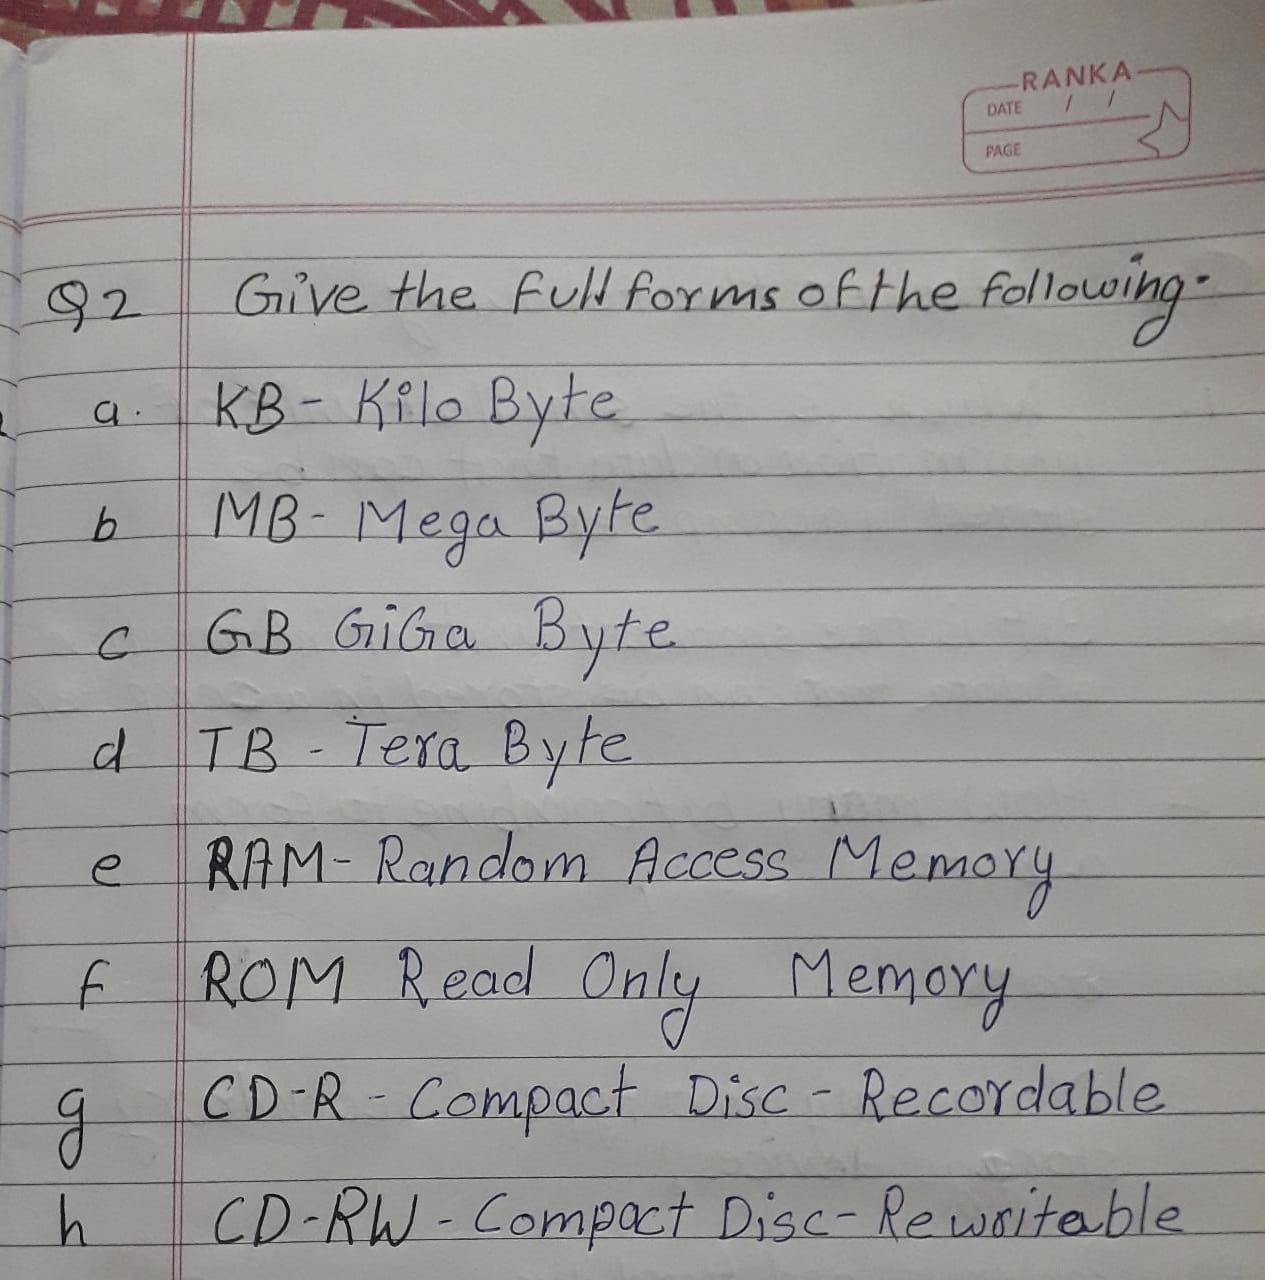 RANKA
DATE / /
PAGE
Q2 Give the full forms of the following-
a. KB - Kilo Byte
b MB - Mega Byte
c GB GiGa Byte
d TB - Tera Byte
e RAM - Random Access Memory
f ROM Read Only Memory
g CD-R - Compact Disc - Recordable
h CD-RW - Compact Disc - Rewritable